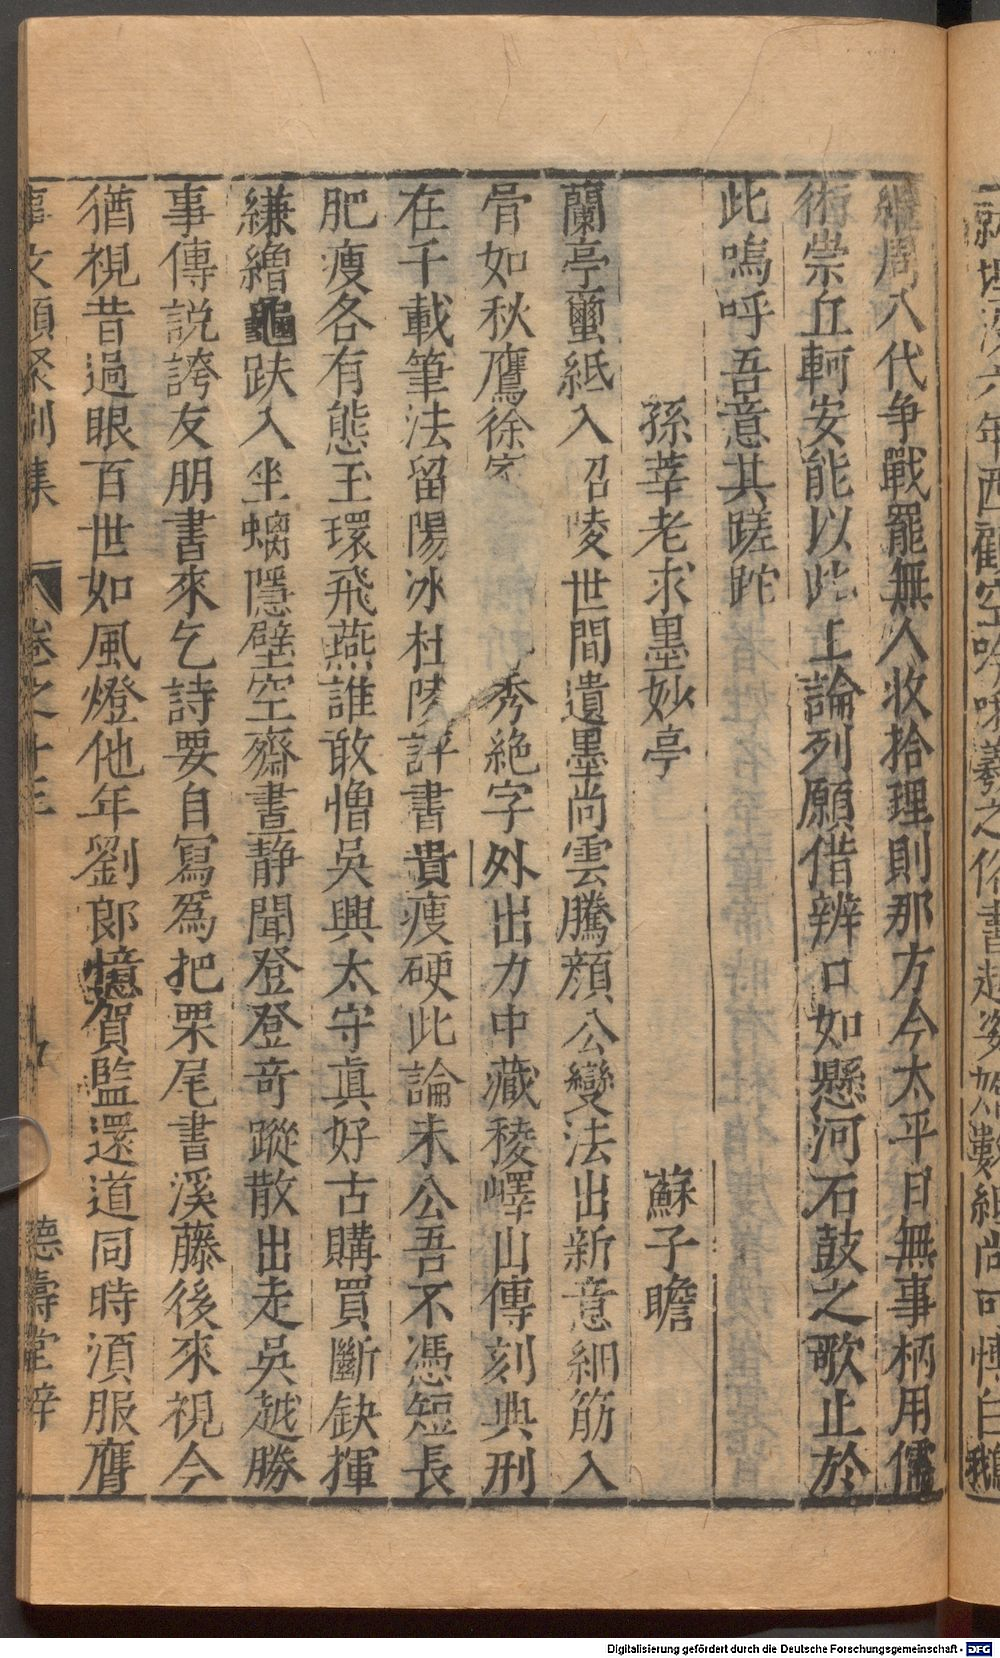 繼周八代争戰罷無人收拾理則那方今太平日無事柄用儒
術崇丘軻安能以此上論列願借辨口如懸河石鼓之歌止於
此嗚呼吾意其蹉跎
孫莘老求墨妙亭 蘇子瞻
蘭亭蠒紙入昭陵世間遺墨尚雲騰顔公變法出新意細筋入
骨如秋鷹徐家 秀絶字外出力中藏稜嶧山傳刻典刑
在千載筆法留陽冰杜陵評書貴瘦硬此論未公吾不憑短長
肥瘦各有態玉環飛燕誰敢憎吳興太守眞好古購買斷缺揮
縑繒龜趺入坐螭隱壁空齋晝静聞登登奇蹤散出走吳越勝
事傳說誇友朋書來乞詩要自寫爲把栗尾書溪藤後來視今
猶視昔過眼百世如風燈他年劉郎憶賀監還道同時湏服膺
事文類聚別集 卷之十三 德壽堂梓
Digitalisierung gefördert durch die Deutsche Forschungsgemeinschaft - DFG